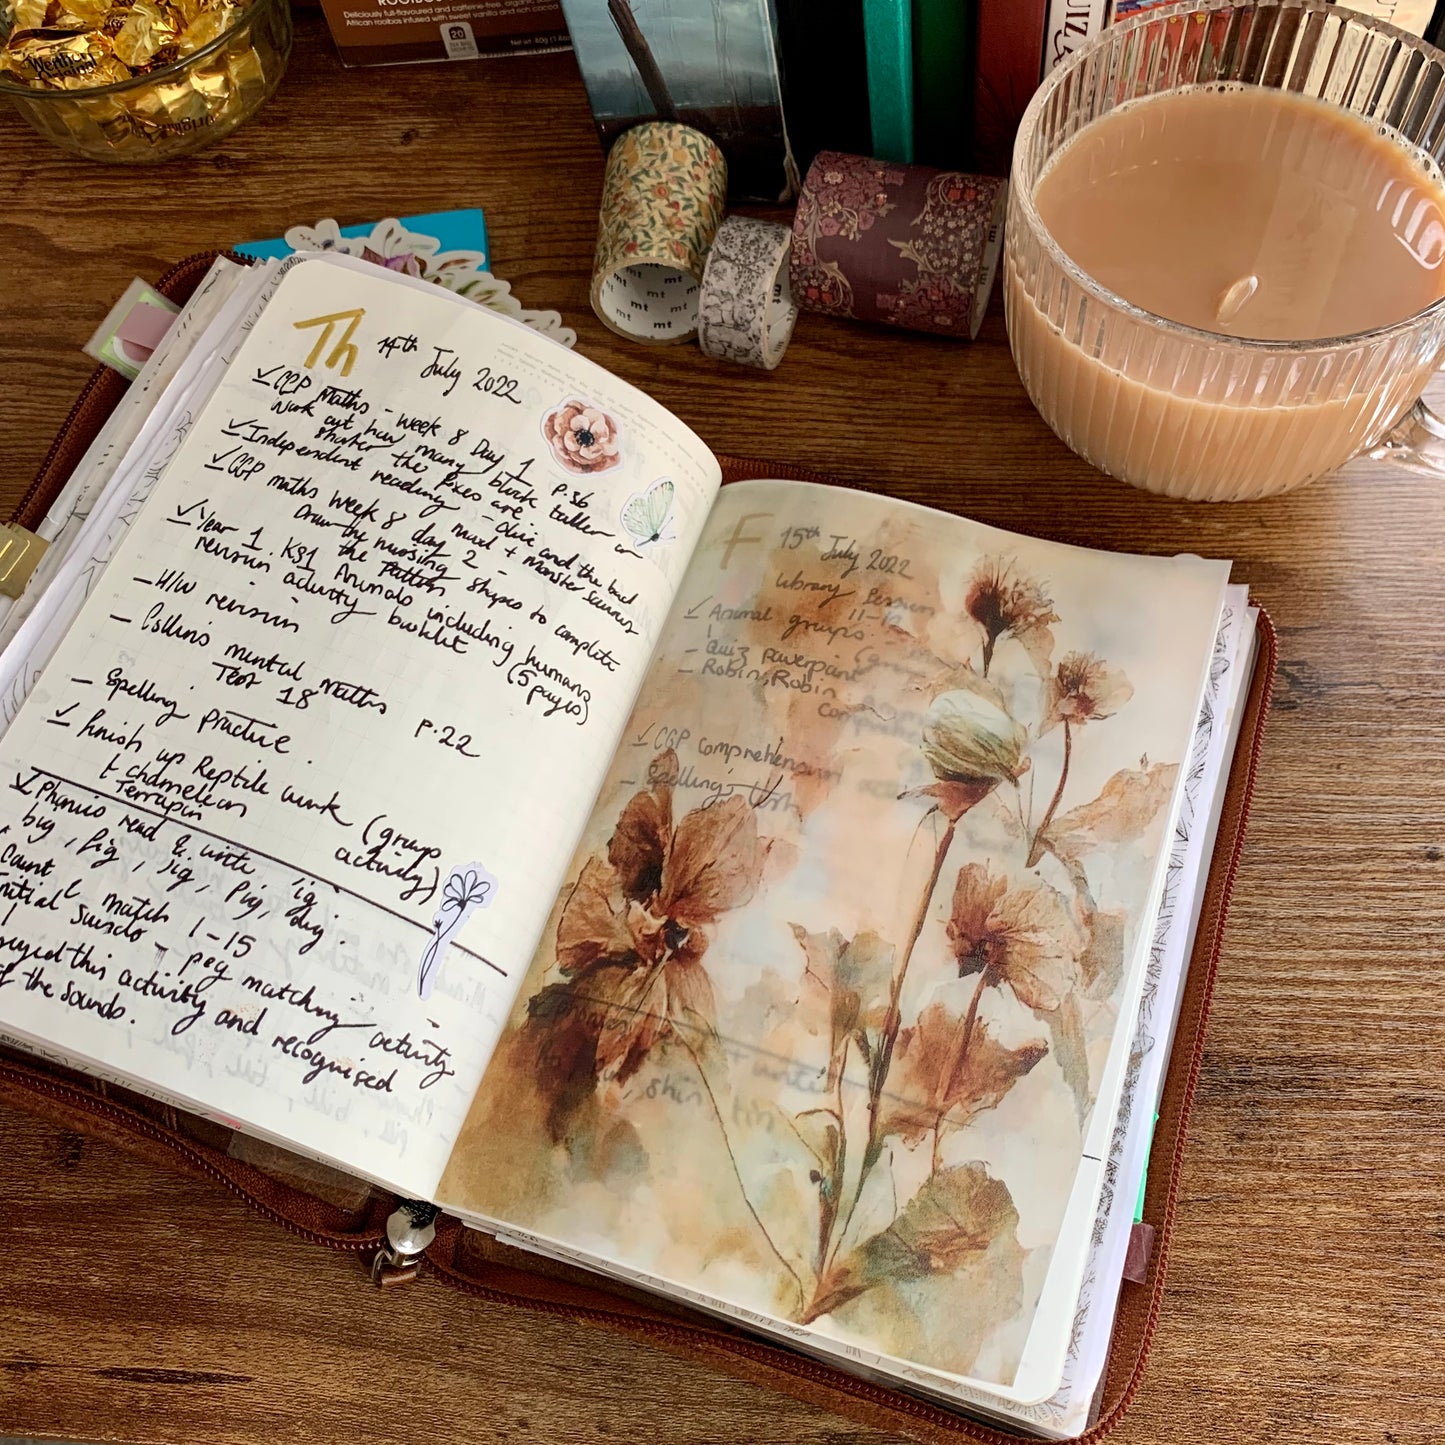 Werther's
Original
ROOIBOS
Deliciously full-flavoured and caffeine-free, organic
African rooibos infused with sweet vanilla and rich cocoa
20
Net
mt
mt
mt
mt
QUIZ
Th 14th July 2022
✓ CGP Maths - week 8 Day 1 p.56
Work out how many block taller or
shorter the boxes are
✓ Independent reading - Olive and the bird
Mud + Monster Saurus
✓ CGP maths week 8 day 2 -
Draw the missing shapes to complete
the Pattern
✓ Year 1 KS1 Animals including humans
revision activity booklet (5 pages)
- H/W revision
- Collins mental Maths p.22
Test 18
- Spelling practice
✓ finish up Reptile work (groups
+ chameleon activity)
Terrapin
✓ Phonics read & write 'ig'
big, fig, jig, pig, dig.
Count & match 1-15
Initial Sounds - peg matching activity
this activity and recognised
of the sounds.
F 15th July 2022
Library Session
11-
✓ Animal groups
- Quiz powerpoint
- Robin, Robin
✓ CGP comprehension
- Spellings test